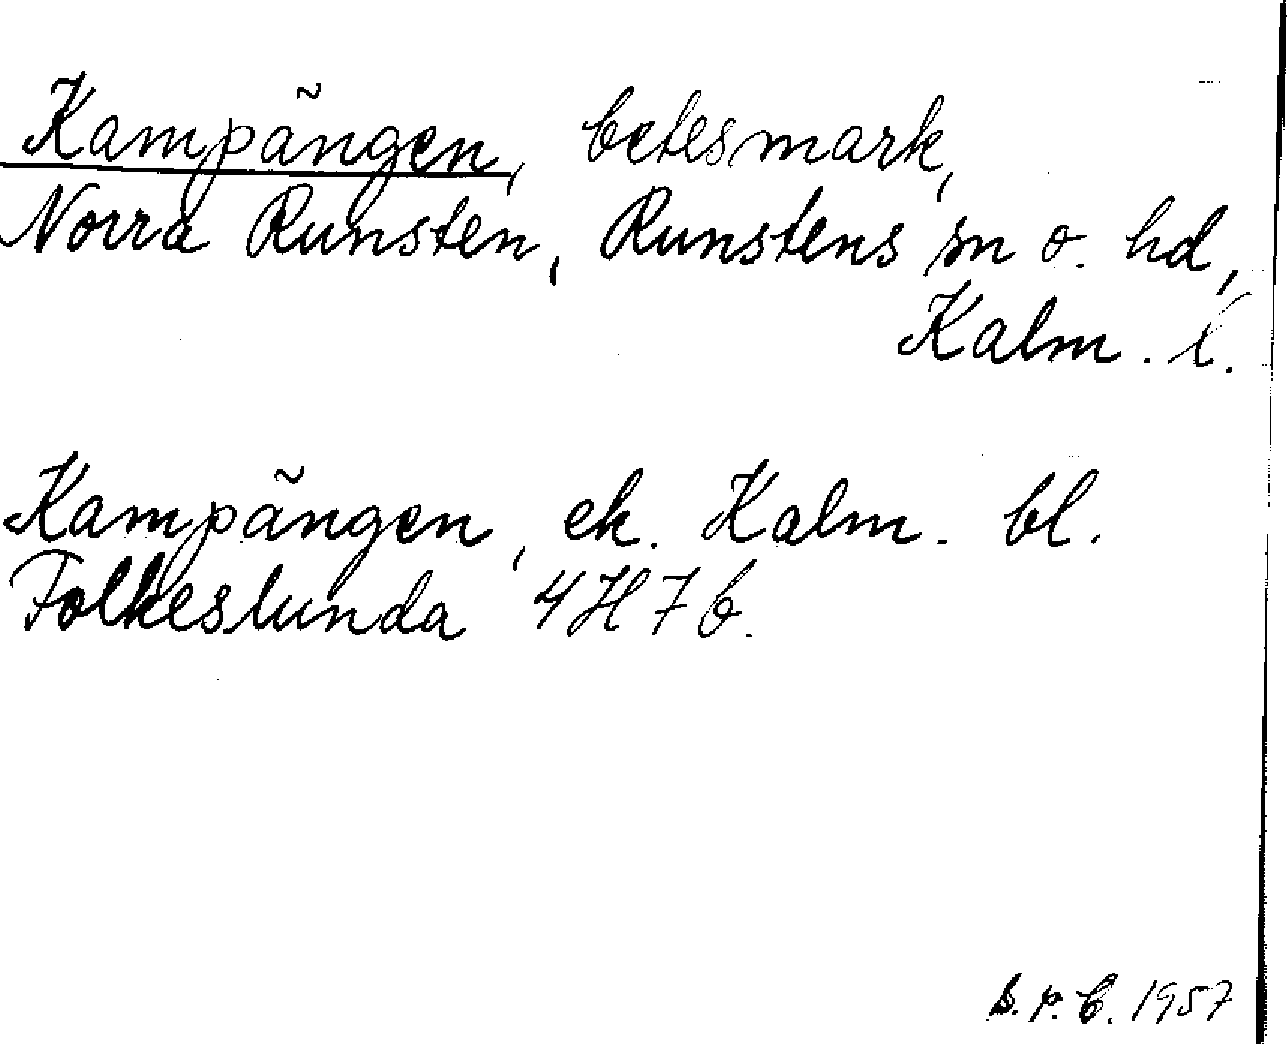 Kampängen, betesmark,
Norra Runsten, Runstens sn o. hd,
Kalm. l.
Kampängen, ek. Kalm. bl.
Folkeslunda 4H7b.
1957